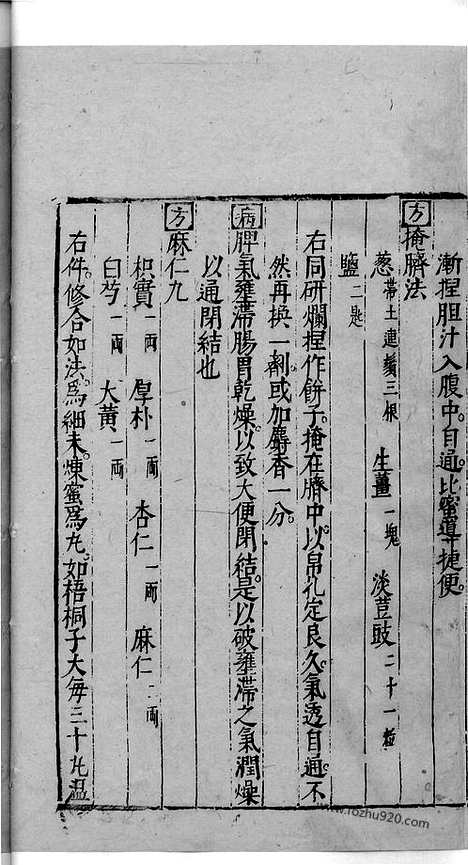 漸捏胆汁入腹中自通比蜜導捷便
方 掩臍法
葱帶土連鬚三根 生薑一塊 淡荳豉二十一粒
鹽二匙
右同研爛捏作餅子掩在臍中以帛扎定良久氣透自通不
然再換一劑或加麝香一分
病 脾氣壅滯腸胃乾燥以致大便閉結是以破壅滯之氣潤燥
以通閉結也
方 麻仁丸
枳實一両 厚朴一両 杏仁一両 麻仁二両
白芍一両 大黃一両
右件修合如法爲細末煉蜜爲丸如梧桐子大每三十丸温
www.fozhu920.com